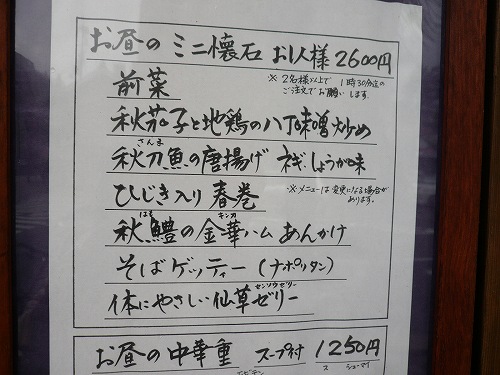 お昼の ミニ懐石 お1人様 2600円
前菜
※ 2名様以上で 1時30分迄の
ご注文でお願いします。
秋茄子と地鶏の八丁味噌炒め
さんま
秋刀魚の唐揚げ ネギしょうが味
ひじき入り 春巻
※メニューは変更になる場合が
あります。
はも キンカ
秋鱧の金華ハム あんかけ
そばゲッティー (ナポリタン)
センソウゼリー
体にやさしい仙草ゼリー
お昼の中華重 スープ付 1250円